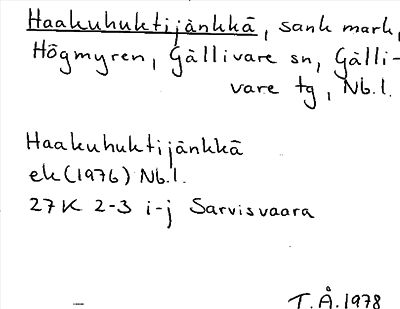 Haakuhuktijänkkä, sank mark,
Högmyren, Gällivare sn, Gälli-
vare tg, Nb.l.
Haakuhuktijänkkä
ek (1976) Nb.l.
27K 2-3 i-j Sarvisvaara
T.Å.1978